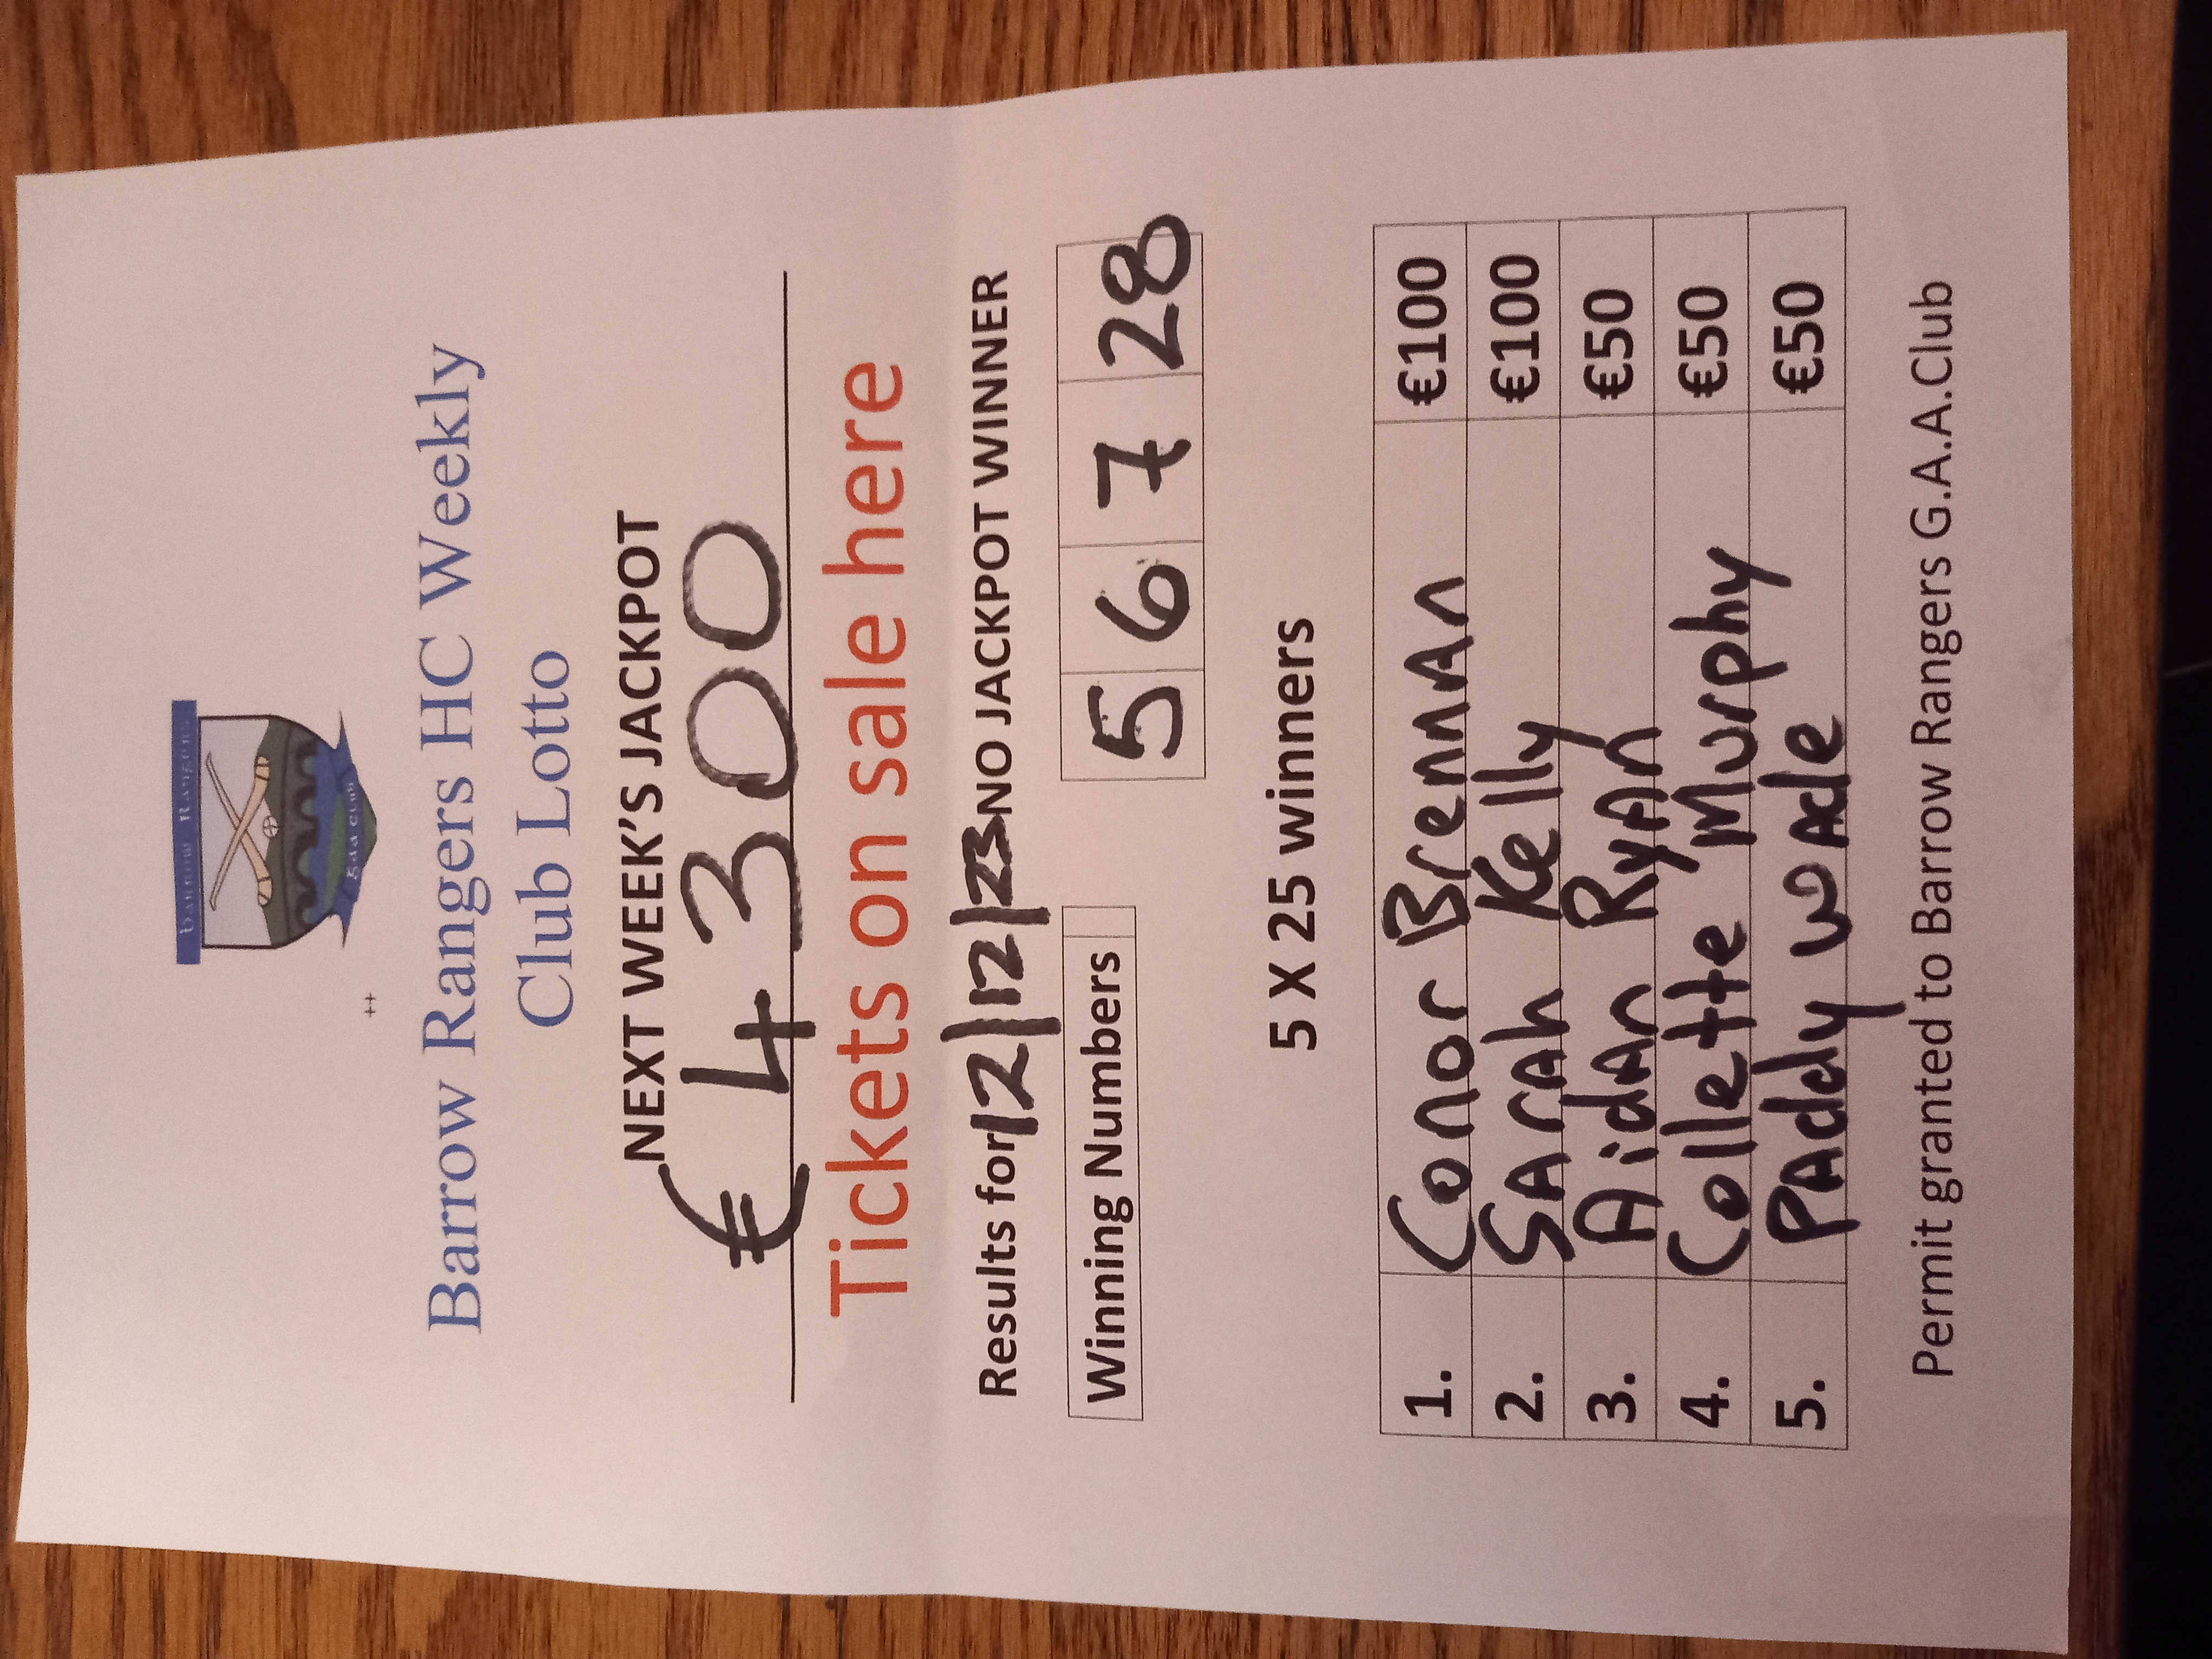 Barrow Rangers
GAA CLUB
++
Barrow Rangers HC Weekly
Club Lotto
NEXT WEEK'S JACKPOT
€4300
Tickets on sale here
Results for 12/12/23 NO JACKPOT WINNER
Winning Numbers 5 6 7 28
5 X 25 winners
1. Conor Brennan €100
2. Sarah Kelly €100
3. Aidan Ryan €50
4. Collette Murphy €50
5. Paddy Wade €50
Permit granted to Barrow Rangers G.A.A.Club